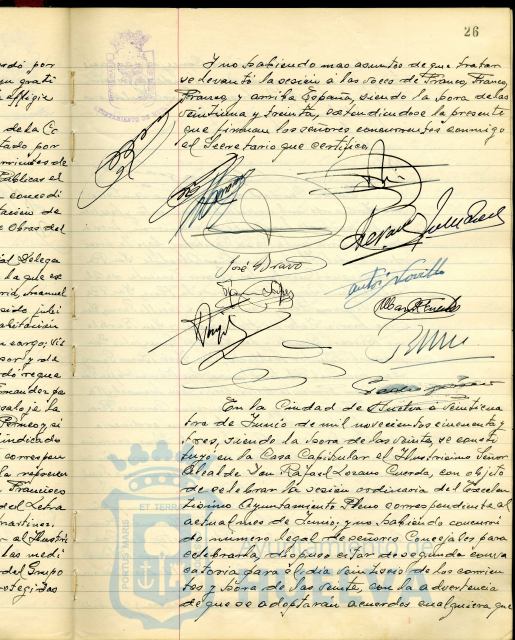 26
ndó por
un grati
a efigie
de la Co
tado por
Públicas el
concedi
tacion de
e Obras del
ial Delega
la que es
Manuel
abitación
u cargo; Vi
sor y de
do reque
rnandez pa
salaje la
Permeo, si
indicado
correspon
Francisco
del Letra
Martinez.
ar al Ilustri
las medi
del Grupo
otegidas
AYUNTAMIENTO DE
Y no habiendo mas asuntos de que tratar
se levantó la sesión a las voces de Franco, Franco,
Franco y arriba España, siendo la hora de las
veintiuna y treinta, extendiendose la presente
que firman los señores concurrentes conmigo
el Secretario que certifico.
José Bravo
En la Ciudad de Huelva a veinticua
tro de Junio de mil novecientos cincuenta y
tres, siendo la hora de las veinte, se consti
tuyo en la Casa Capitular el Ilustrisimo Señor
Alcalde Don Rafael Lozano Cuerda, con objeto
de celebrar la sesión ordinaria del Excelen
tisimo Ayuntamiento Pleno correspondiente al
actual mes de Junio, y no habiendo concurri
do número legal de señores Concejales para
celebrarla, dispuso citar de segunda convo
catoria para el día veintiseis de los corrien
tes y hora de las veinte, con la advertencia
de que se adoptarán acuerdos cualquiera que
PORTUS MARIS ET TERRAE
AYUNTAMIENTO DE
HUELVA